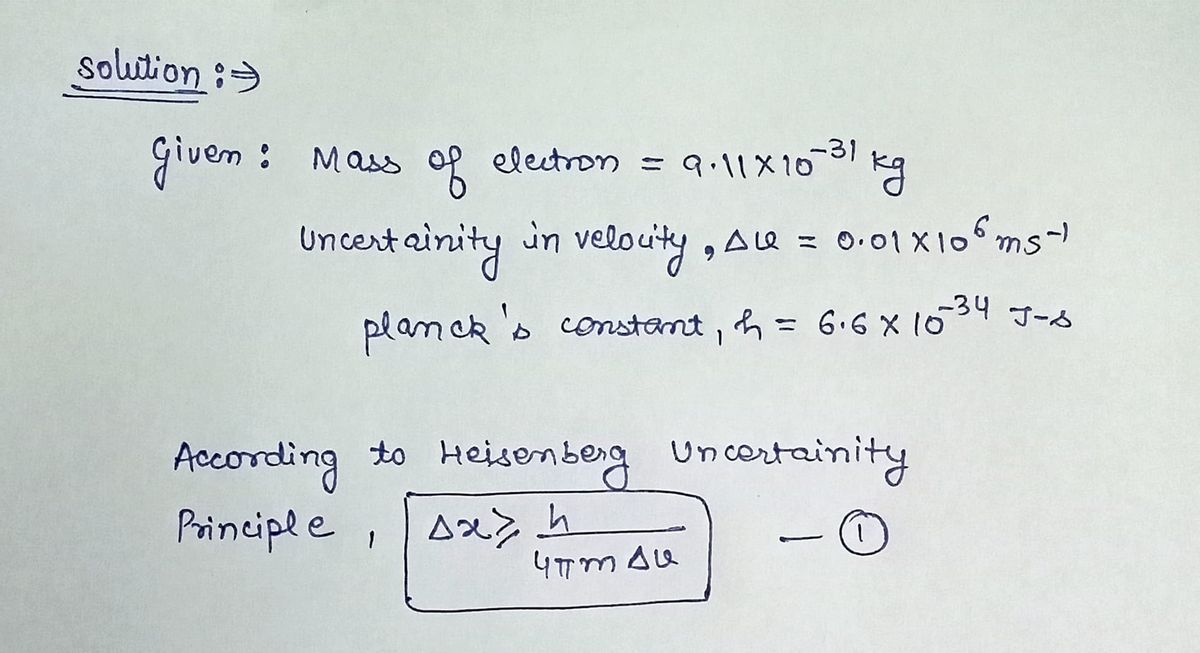 solution :⇒
Given : Mass of electron = 9.11 × 10⁻³¹ kg
Uncertainity in velocity, Δv = 0.01 × 10⁶ ms⁻¹
planck's constant, h = 6.6 × 10⁻³⁴ J-s
According to Heisenberg Uncertainity
Principle, Δx ≥ h / 4πm Δv — ①